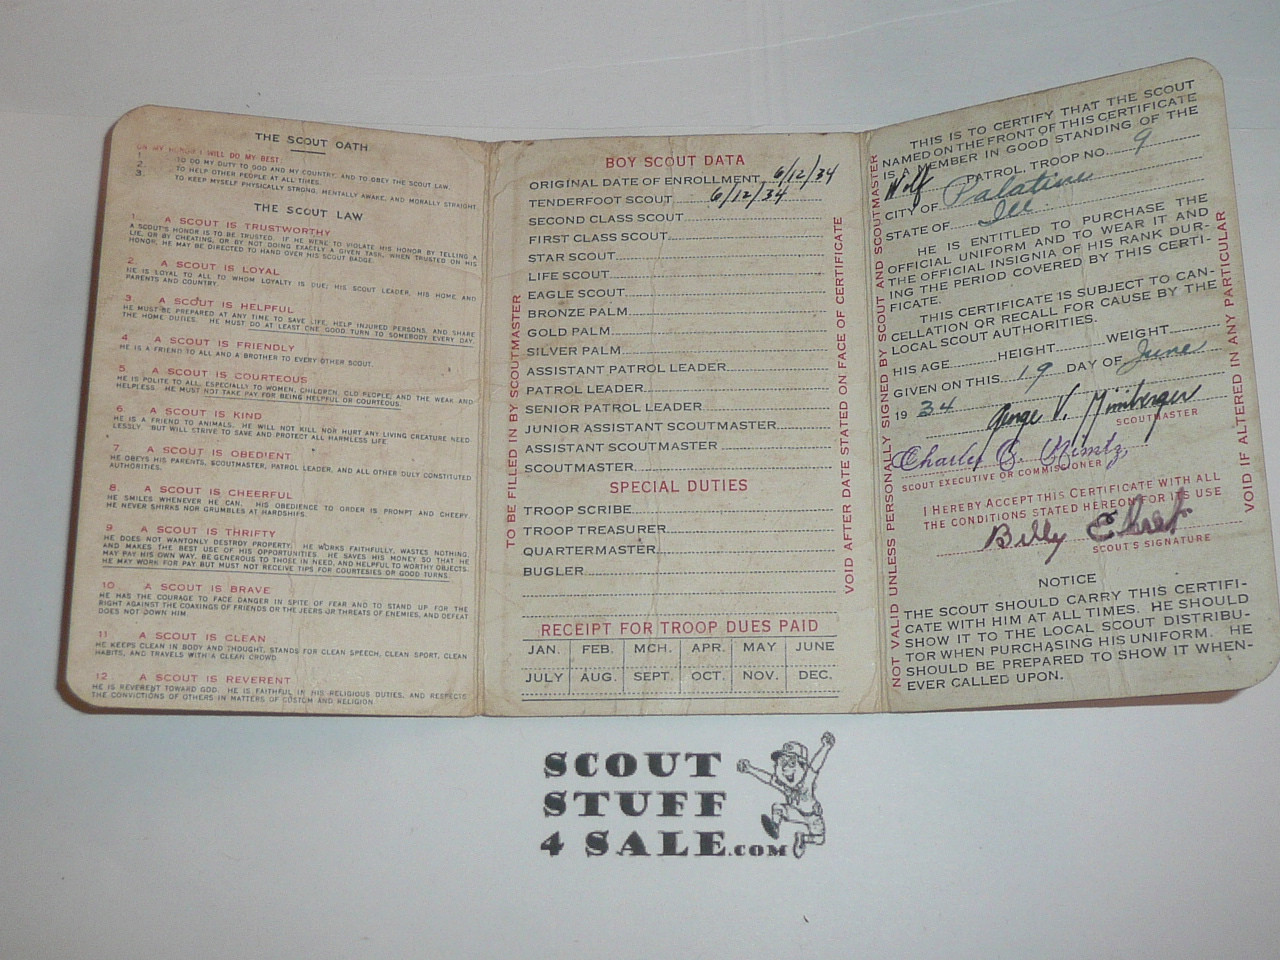 THE SCOUT OATH
ON MY HONOR I WILL DO MY BEST:
1. TO DO MY DUTY TO GOD AND MY COUNTRY, AND TO OBEY THE SCOUT LAW.
2. TO HELP OTHER PEOPLE AT ALL TIMES.
3. TO KEEP MYSELF PHYSICALLY STRONG, MENTALLY AWAKE, AND MORALLY STRAIGHT.
THE SCOUT LAW
1. A SCOUT IS TRUSTWORTHY
A SCOUT'S HONOR IS TO BE TRUSTED. IF HE WERE TO VIOLATE HIS HONOR BY TELLING A
LIE, OR BY CHEATING, OR BY NOT DOING EXACTLY A GIVEN TASK, WHEN TRUSTED ON HIS
HONOR, HE MAY BE DIRECTED TO HAND OVER HIS SCOUT BADGE.
2. A SCOUT IS LOYAL
HE IS LOYAL TO ALL TO WHOM LOYALTY IS DUE; HIS SCOUT LEADER, HIS HOME AND
PARENTS AND COUNTRY.
3. A SCOUT IS HELPFUL
HE MUST BE PREPARED AT ANY TIME TO SAVE LIFE, HELP INJURED PERSONS, AND SHARE
THE HOME DUTIES. HE MUST DO AT LEAST ONE GOOD TURN TO SOMEBODY EVERY DAY.
4. A SCOUT IS FRIENDLY
HE IS A FRIEND TO ALL AND A BROTHER TO EVERY OTHER SCOUT.
5. A SCOUT IS COURTEOUS
HE IS POLITE TO ALL, ESPECIALLY TO WOMEN, CHILDREN, OLD PEOPLE, AND THE WEAK AND
HELPLESS. HE MUST NOT TAKE PAY FOR BEING HELPFUL OR COURTEOUS.
6. A SCOUT IS KIND
HE IS A FRIEND TO ANIMALS. HE WILL NOT KILL NOR HURT ANY LIVING CREATURE NEED-
LESSLY, BUT WILL STRIVE TO SAVE AND PROTECT ALL HARMLESS LIFE.
7. A SCOUT IS OBEDIENT
HE OBEYS HIS PARENTS, SCOUTMASTER, PATROL LEADER, AND ALL OTHER DULY CONSTITUTED
AUTHORITIES.
8. A SCOUT IS CHEERFUL
HE SMILES WHENEVER HE CAN. HIS OBEDIENCE TO ORDER IS PROMPT AND CHEERY
HE NEVER SHIRKS NOR GRUMBLES AT HARDSHIPS.
9. A SCOUT IS THRIFTY
HE DOES NOT WANTONLY DESTROY PROPERTY. HE WORKS FAITHFULLY, WASTES NOTHING,
AND MAKES THE BEST USE OF HIS OPPORTUNITIES. HE SAVES HIS MONEY SO THAT HE
MAY PAY HIS OWN WAY, BE GENEROUS TO THOSE IN NEED, AND HELPFUL TO WORTHY OBJECTS.
HE MAY WORK FOR PAY BUT MUST NOT RECEIVE TIPS FOR COURTESIES OR GOOD TURNS.
10. A SCOUT IS BRAVE
HE HAS THE COURAGE TO FACE DANGER IN SPITE OF FEAR AND TO STAND UP FOR THE
RIGHT AGAINST THE COAXINGS OF FRIENDS OR THE JEERS OR THREATS OF ENEMIES, AND DEFEAT
DOES NOT DOWN HIM.
11. A SCOUT IS CLEAN
HE KEEPS CLEAN IN BODY AND THOUGHT, STANDS FOR CLEAN SPEECH, CLEAN SPORT, CLEAN
HABITS, AND TRAVELS WITH A CLEAN CROWD.
12. A SCOUT IS REVERENT
HE IS REVERENT TOWARD GOD. HE IS FAITHFUL IN HIS RELIGIOUS DUTIES, AND RESPECTS
THE CONVICTIONS OF OTHERS IN MATTERS OF CUSTOM AND RELIGION.
TO BE FILLED IN BY SCOUTMASTER
BOY SCOUT DATA
ORIGINAL DATE OF ENROLLMENT 6/12/34
TENDERFOOT SCOUT 6/12/34
SECOND CLASS SCOUT
FIRST CLASS SCOUT
STAR SCOUT
LIFE SCOUT
EAGLE SCOUT
BRONZE PALM
GOLD PALM
SILVER PALM
ASSISTANT PATROL LEADER
PATROL LEADER
SENIOR PATROL LEADER
JUNIOR ASSISTANT SCOUTMASTER
ASSISTANT SCOUTMASTER
SCOUTMASTER
SPECIAL DUTIES
TROOP SCRIBE
TROOP TREASURER
QUARTERMASTER
BUGLER
RECEIPT FOR TROOP DUES PAID
JAN. FEB. MCH. APR. MAY JUNE
JULY AUG. SEPT. OCT. NOV. DEC.
VOID AFTER DATE STATED ON FACE OF CERTIFICATE
NOT VALID UNLESS PERSONALLY SIGNED BY SCOUT AND SCOUTMASTER
THIS IS TO CERTIFY THAT THE SCOUT
NAMED ON THE FRONT OF THIS CERTIFICATE
IS A MEMBER IN GOOD STANDING OF THE
Wolf PATROL, TROOP NO. 9
CITY OF Palatine
STATE OF Ill.
HE IS ENTITLED TO PURCHASE THE
OFFICIAL UNIFORM AND TO WEAR IT AND
THE OFFICIAL INSIGNIA OF HIS RANK DUR-
ING THE PERIOD COVERED BY THIS CERTI-
FICATE.
THIS CERTIFICATE IS SUBJECT TO CAN-
CELLATION OR RECALL FOR CAUSE BY THE
LOCAL SCOUT AUTHORITIES.
HIS AGE HEIGHT WEIGHT
GIVEN ON THIS 19 DAY OF June
19 34 George V.
SCOUTMASTER
SCOUT EXECUTIVE OR COMMISSIONER
I HEREBY ACCEPT THIS CERTIFICATE WITH ALL
THE CONDITIONS STATED HEREON FOR ITS USE
Billy
SCOUT'S SIGNATURE
NOTICE
THE SCOUT SHOULD CARRY THIS CERTIFI-
CATE WITH HIM AT ALL TIMES. HE SHOULD
SHOW IT TO THE LOCAL SCOUT DISTRIBU-
TOR WHEN PURCHASING HIS UNIFORM. HE
SHOULD BE PREPARED TO SHOW IT WHEN-
EVER CALLED UPON.
VOID IF ALTERED IN ANY PARTICULAR
SCOUT
STUFF
4 SALE.COM